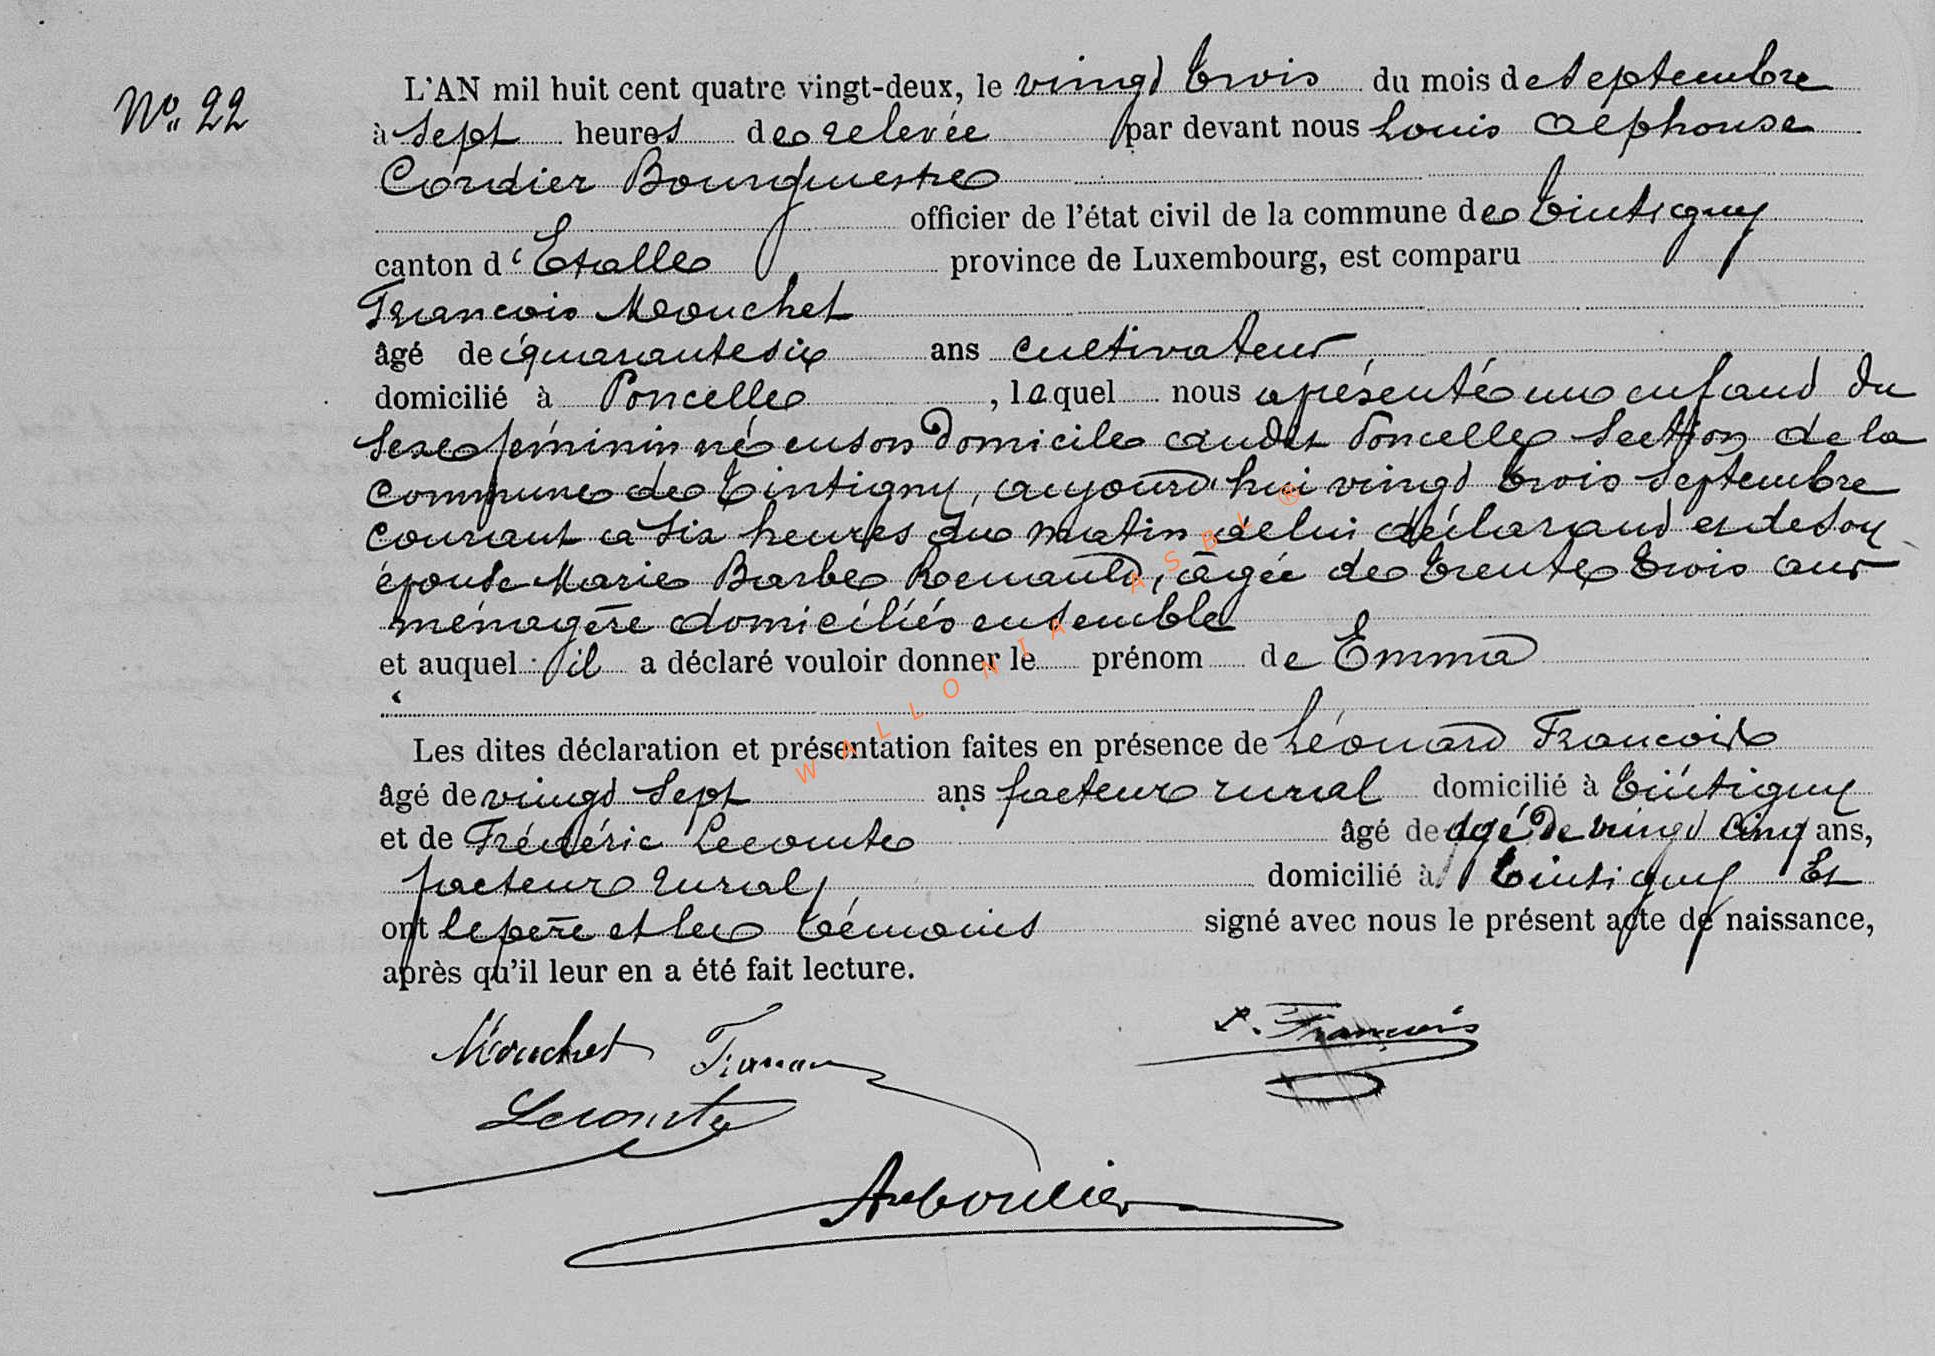 No. 22
L'AN mil huit cent quatre vingt-deux, le vingd trois du mois de septembre
à sept heures de relevée par devant nous Louis Alphonse
Cordier Bourgmestre
officier de l'état civil de la commune de Tintigny
canton d'Etalle province de Luxembourg, est comparu
Francois Mouchet
âgé de quarante six ans cultivateur
domicilié à Poncelle, lequel nous a présenté un enfand du
sexe féminin né en son domicile audit Poncelle section de la
commune de Tintigny, aujourd'hui vingd trois septembre
courant à six heures du matin de lui déclarand et de son
épouse Marie Barbe Renauld, âgée de trente trois ans
ménagère domiciliés ensemble
et auquel il a déclaré vouloir donner le prénom de Emma
Les dites déclaration et présentation faites en présence de Léonard Francois
âgé de vingd sept ans facteur rural domicilié à Tintigny
et de Frédéric Lecomte âgé de agé de vingd cinq ans,
facteur rural, domicilié à Tintigny Et
ont le père et les témoins signé avec nous le présent acte de naissance,
après qu'il leur en a été fait lecture.
Mouchet L. François
Lecomte
WALLONIA ASBL ®